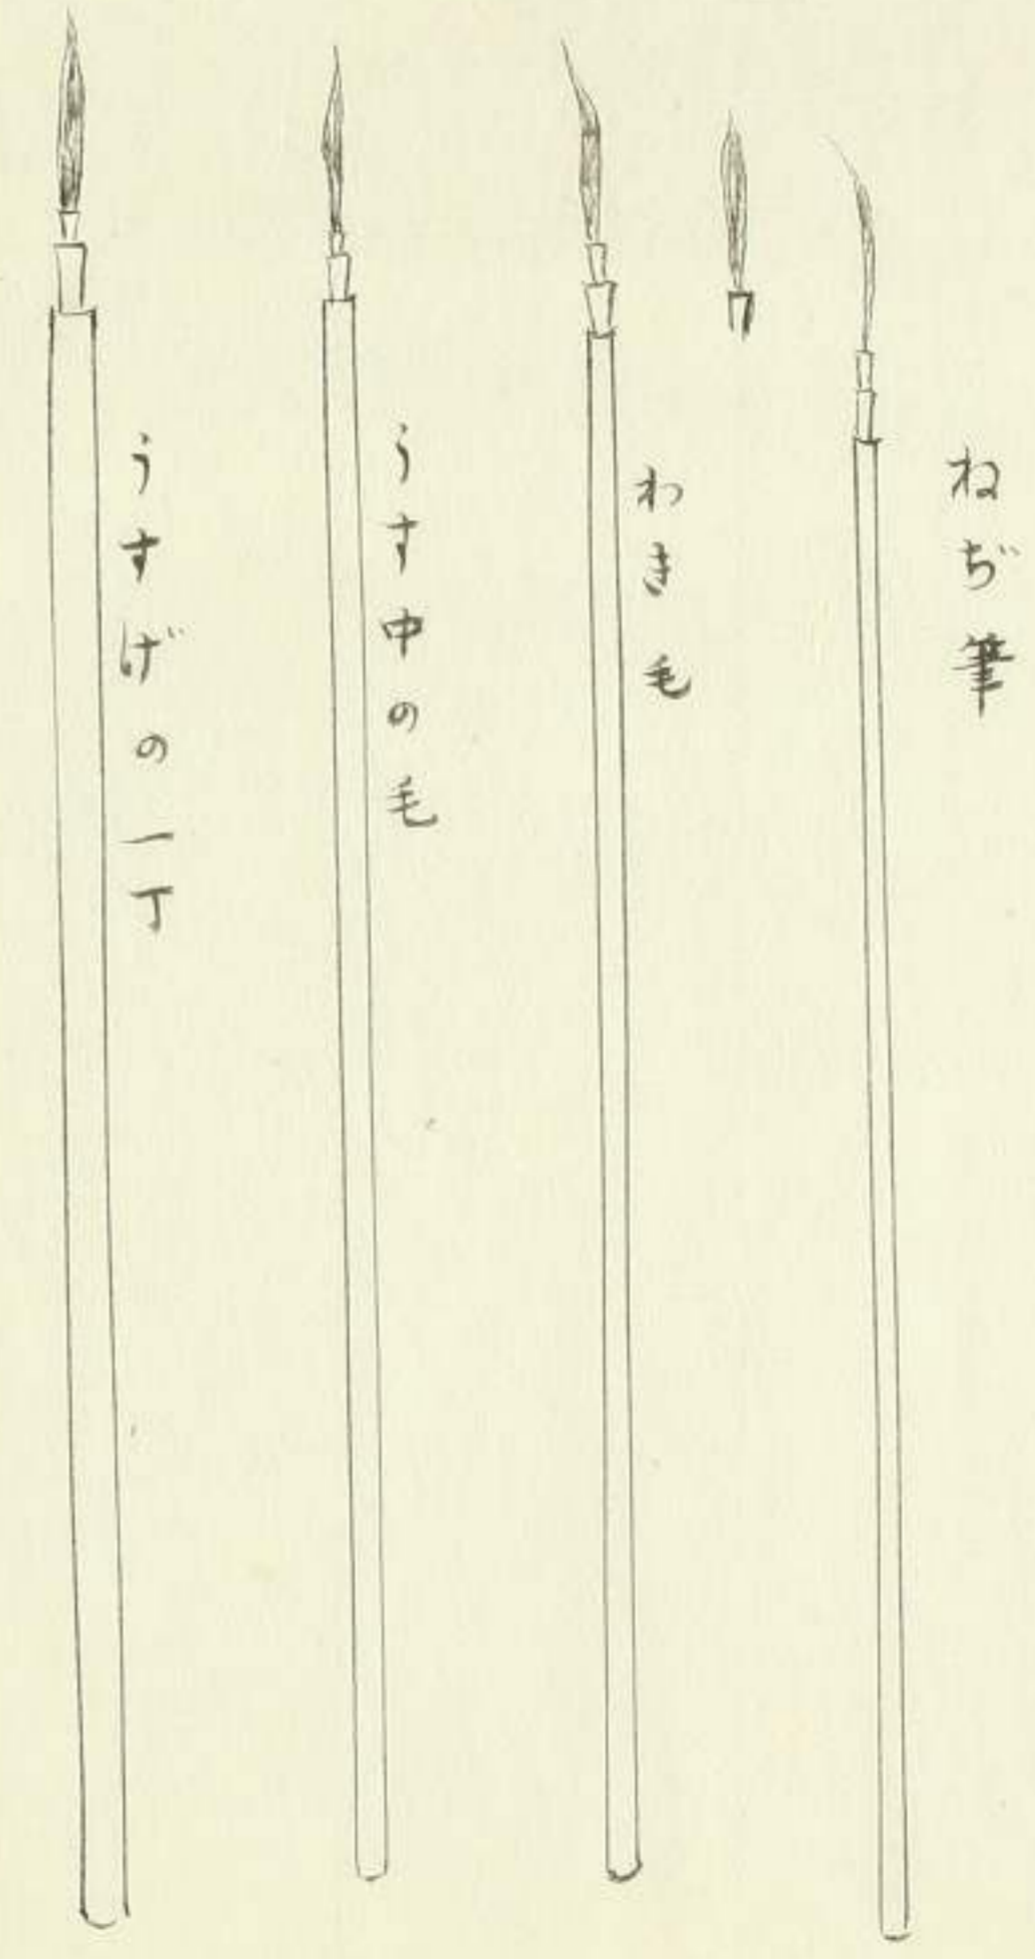 ねぢ筆
わき毛
うす中の毛
うすげの一丁